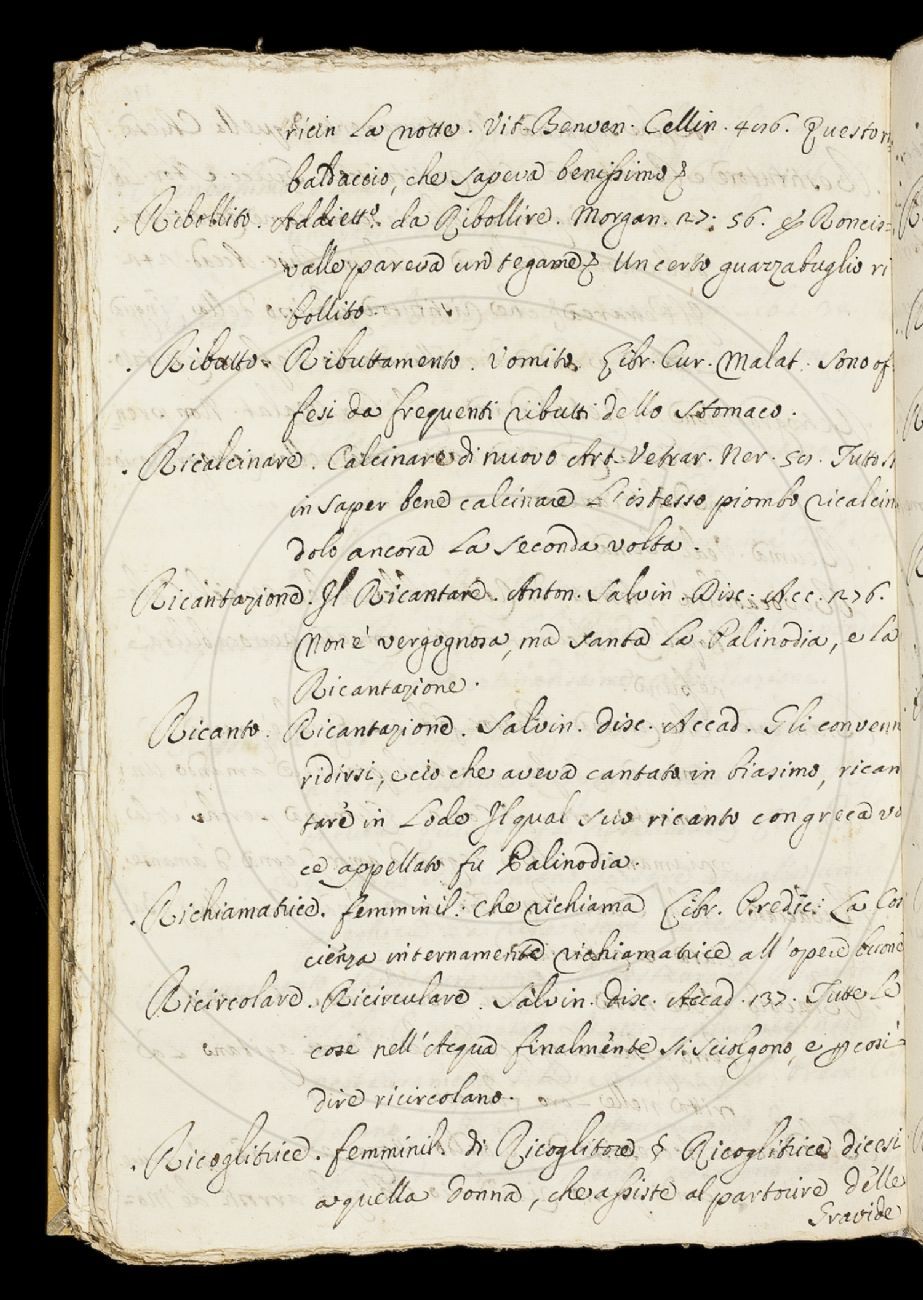 ricin la notte. Vit. Benven. Cellin. 406. Questo
baldaccio, che sapeva benissimo &
Ribollito. Addiett. da Ribollire. Morgan. 27. 56. & Roncis=
valle pareva un tegame & Un certo guazzabuglio ri
bollito.
Ributto. Ributtamento. Vomito. Libr. Cur. Malat. Sono of
fesi da frequenti ributti dello Stomaco.
Ricalcinare. Calcinare di nuovo Art. Vetrar. Ner. 59. Tutto
in saper bene calcinare L'istesso piombo ricalcin
dolo ancora la seconda volta.
Ricantazione. Il Ricantare. Anton. Salvin. Disc. Acc. 276.
Non è vergognosa, ma santa la Palinodia, e la
Ricantazione.
Ricanto. Ricantazione. Salvin. disc. Accad. Gli convenn
ridirsi, e ciò che aveva cantato in biasimo, rican
tare in Lode Il qual suo ricanto con greca vo
ce appellato fu Palinodia.
Richiamatrice. femminil. che richiama Libr. Predic. La Cos
cienza internamente richiamatrice all'opere buone
Ricircolare. Ricirculare. Salvin. disc. Accad. 137. Tutte le
cose nell'Acqua finalmente si sciolgono, e p così
dire ricircolano.
Ricoglitrice. femminil. di Ricoglitore & Ricoglitrice dicesi
a quella donna, che assiste al partorire delle
Gravide